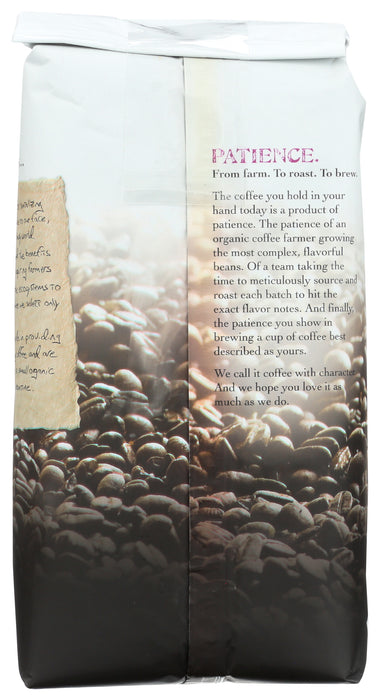 PATIENCE.
From farm. To roast. To brew.
The coffee you hold in your
hand today is a product of
patience. The patience of an
organic coffee farmer growing
the most complex, flavorful
beans. Of a team taking the
time to meticulously source and
roast each batch to hit the
exact flavor notes. And finally,
the patience you show in
brewing a cup of coffee best
described as yours.
We call it coffee with character.
And we hope you love it as
much as we do.
world
benefits
farmers
to
only
providing
and are
organic